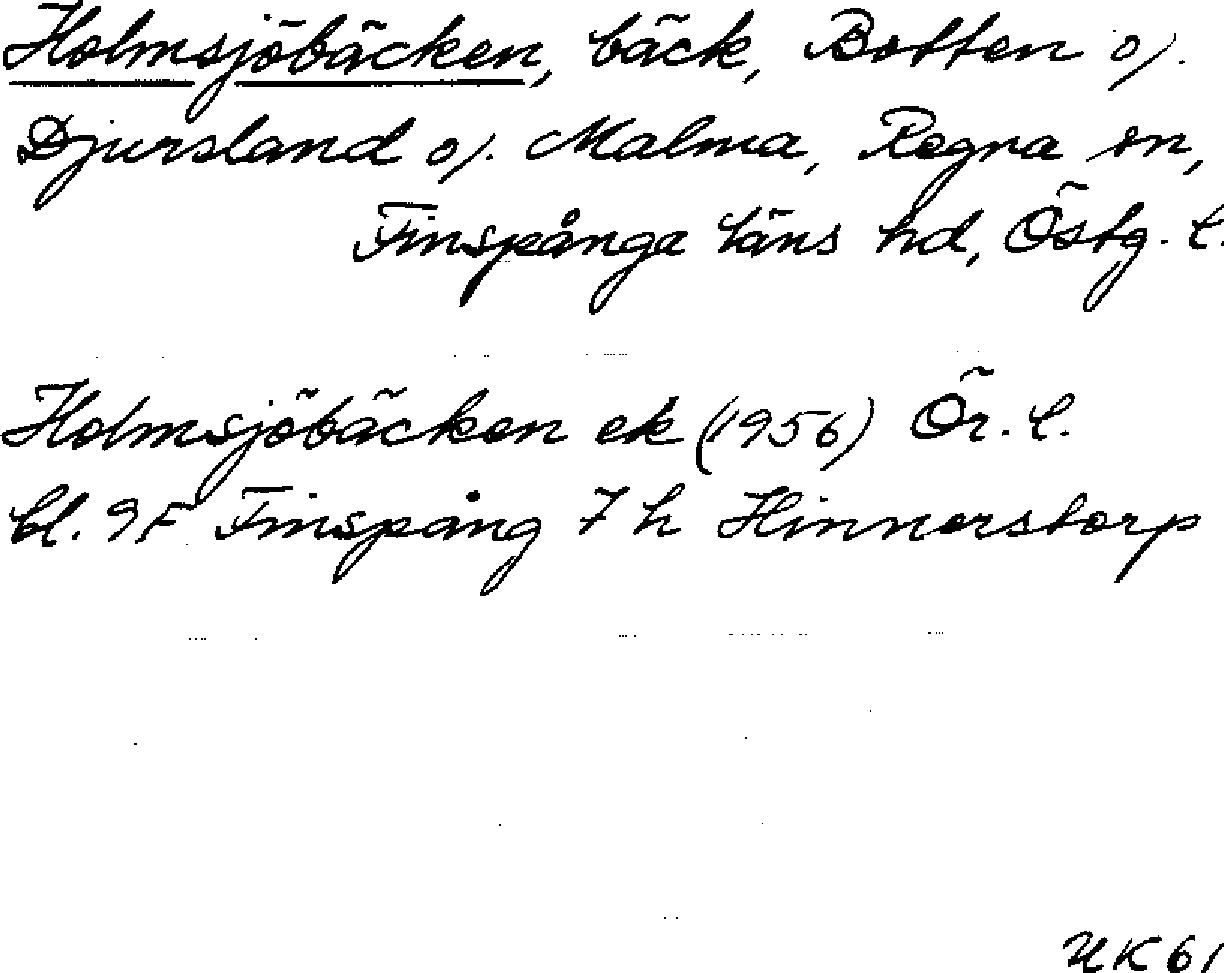 Holmsjöbäcken, bäck, Botten o/.
Djursland o/. Malma, Regna sn,
Finspånga läns hd, Östg. l.
Holmsjöbäcken ek (1956) Ör. l.
bl. 9F Finspång 7 h Hinnerstorp
UK 61